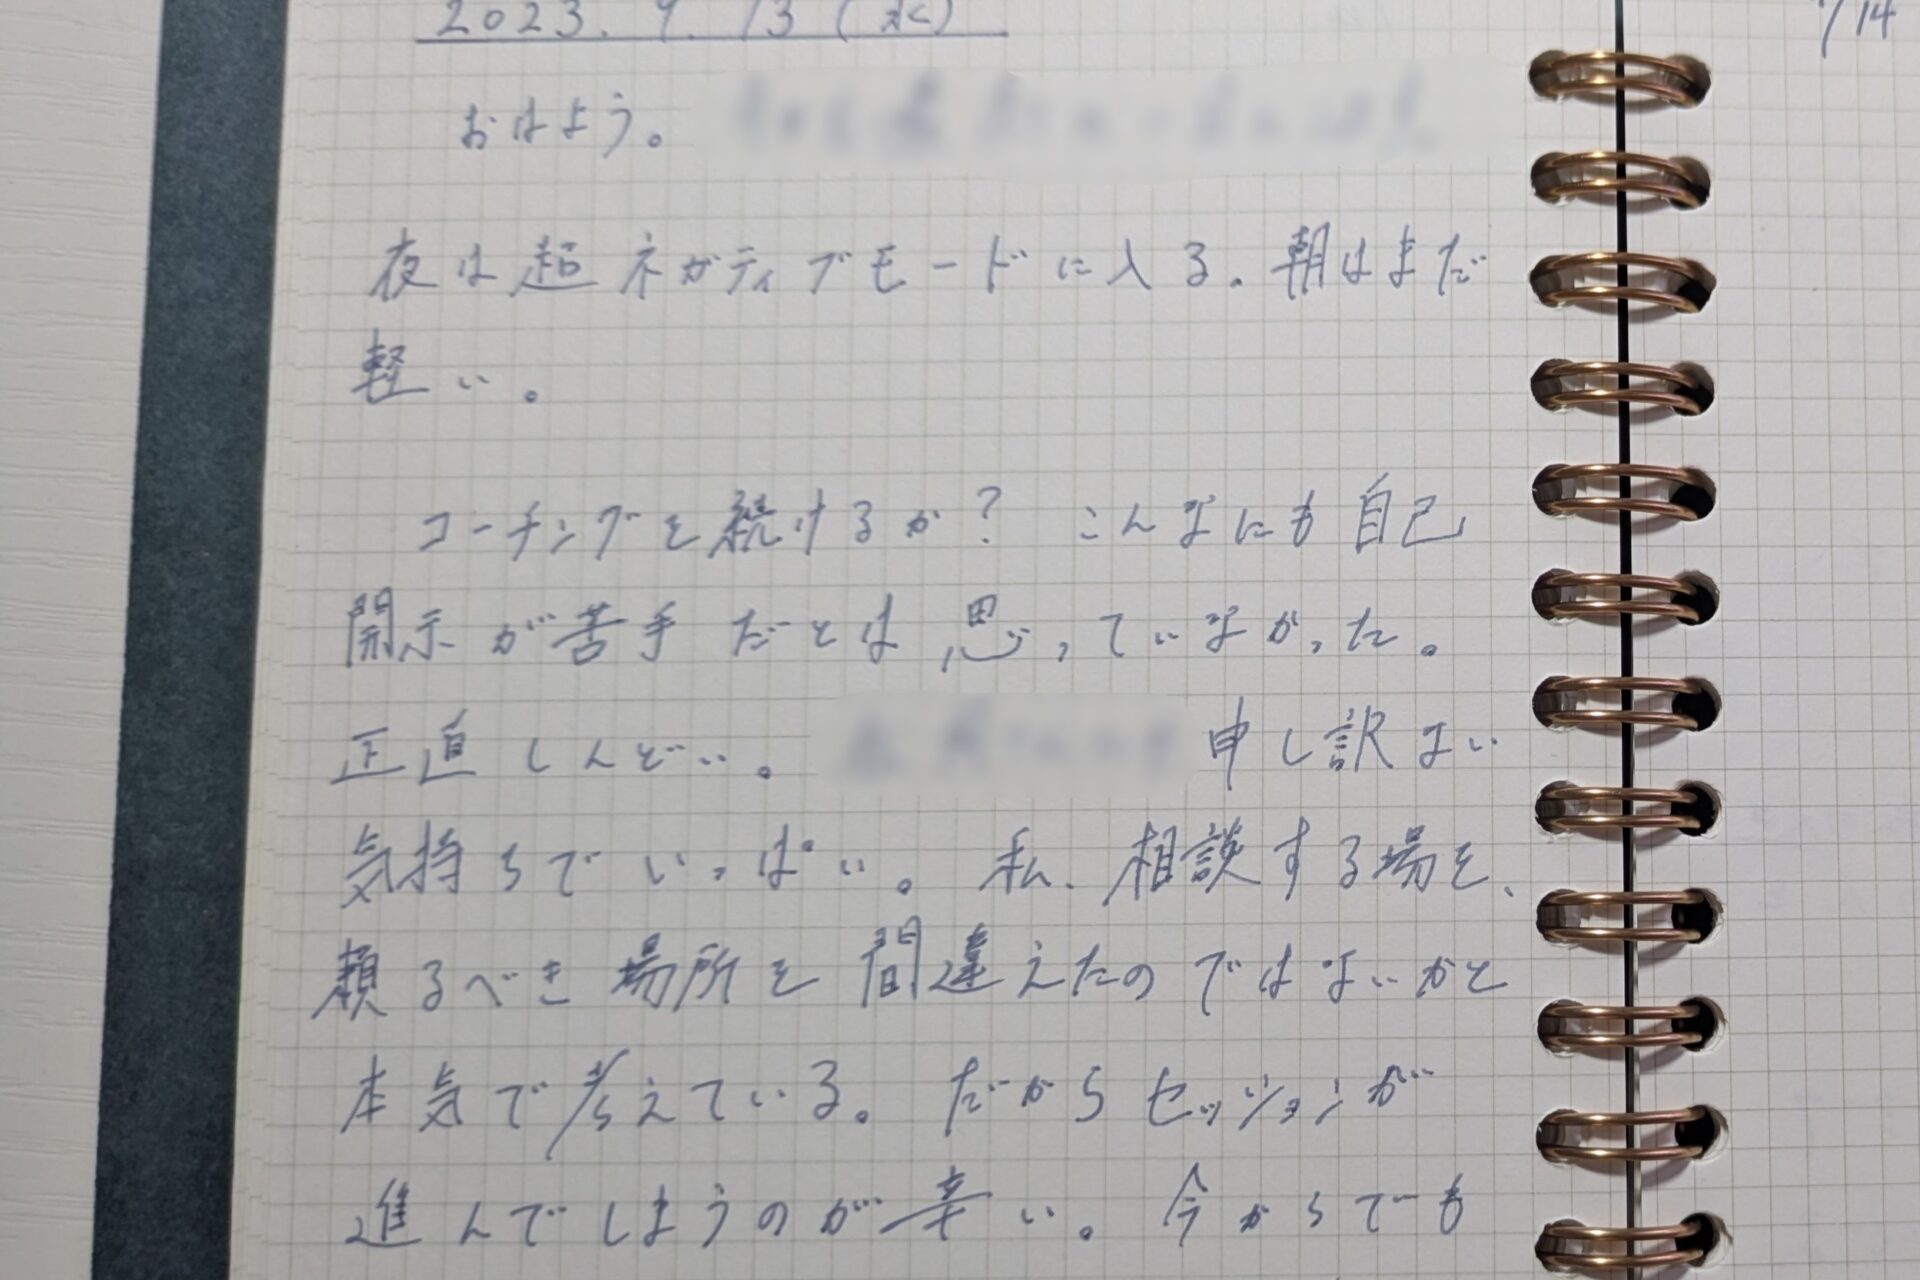 2023. 9. 13 (水)
/14
おはよう。
夜は超ネガティブモードに入る。朝はまだ
軽い。
コーチングを続けるか？ こんなにも自己
開示が苦手だとは思っていなかった。
正直しんどい。 申し訳ない
気持ちでいっぱい。私、相談する場を、
頼るべき場所を間違えたのではないかと
本気で考えている。だからセッションが
進んでしまうのが辛い。今からでも